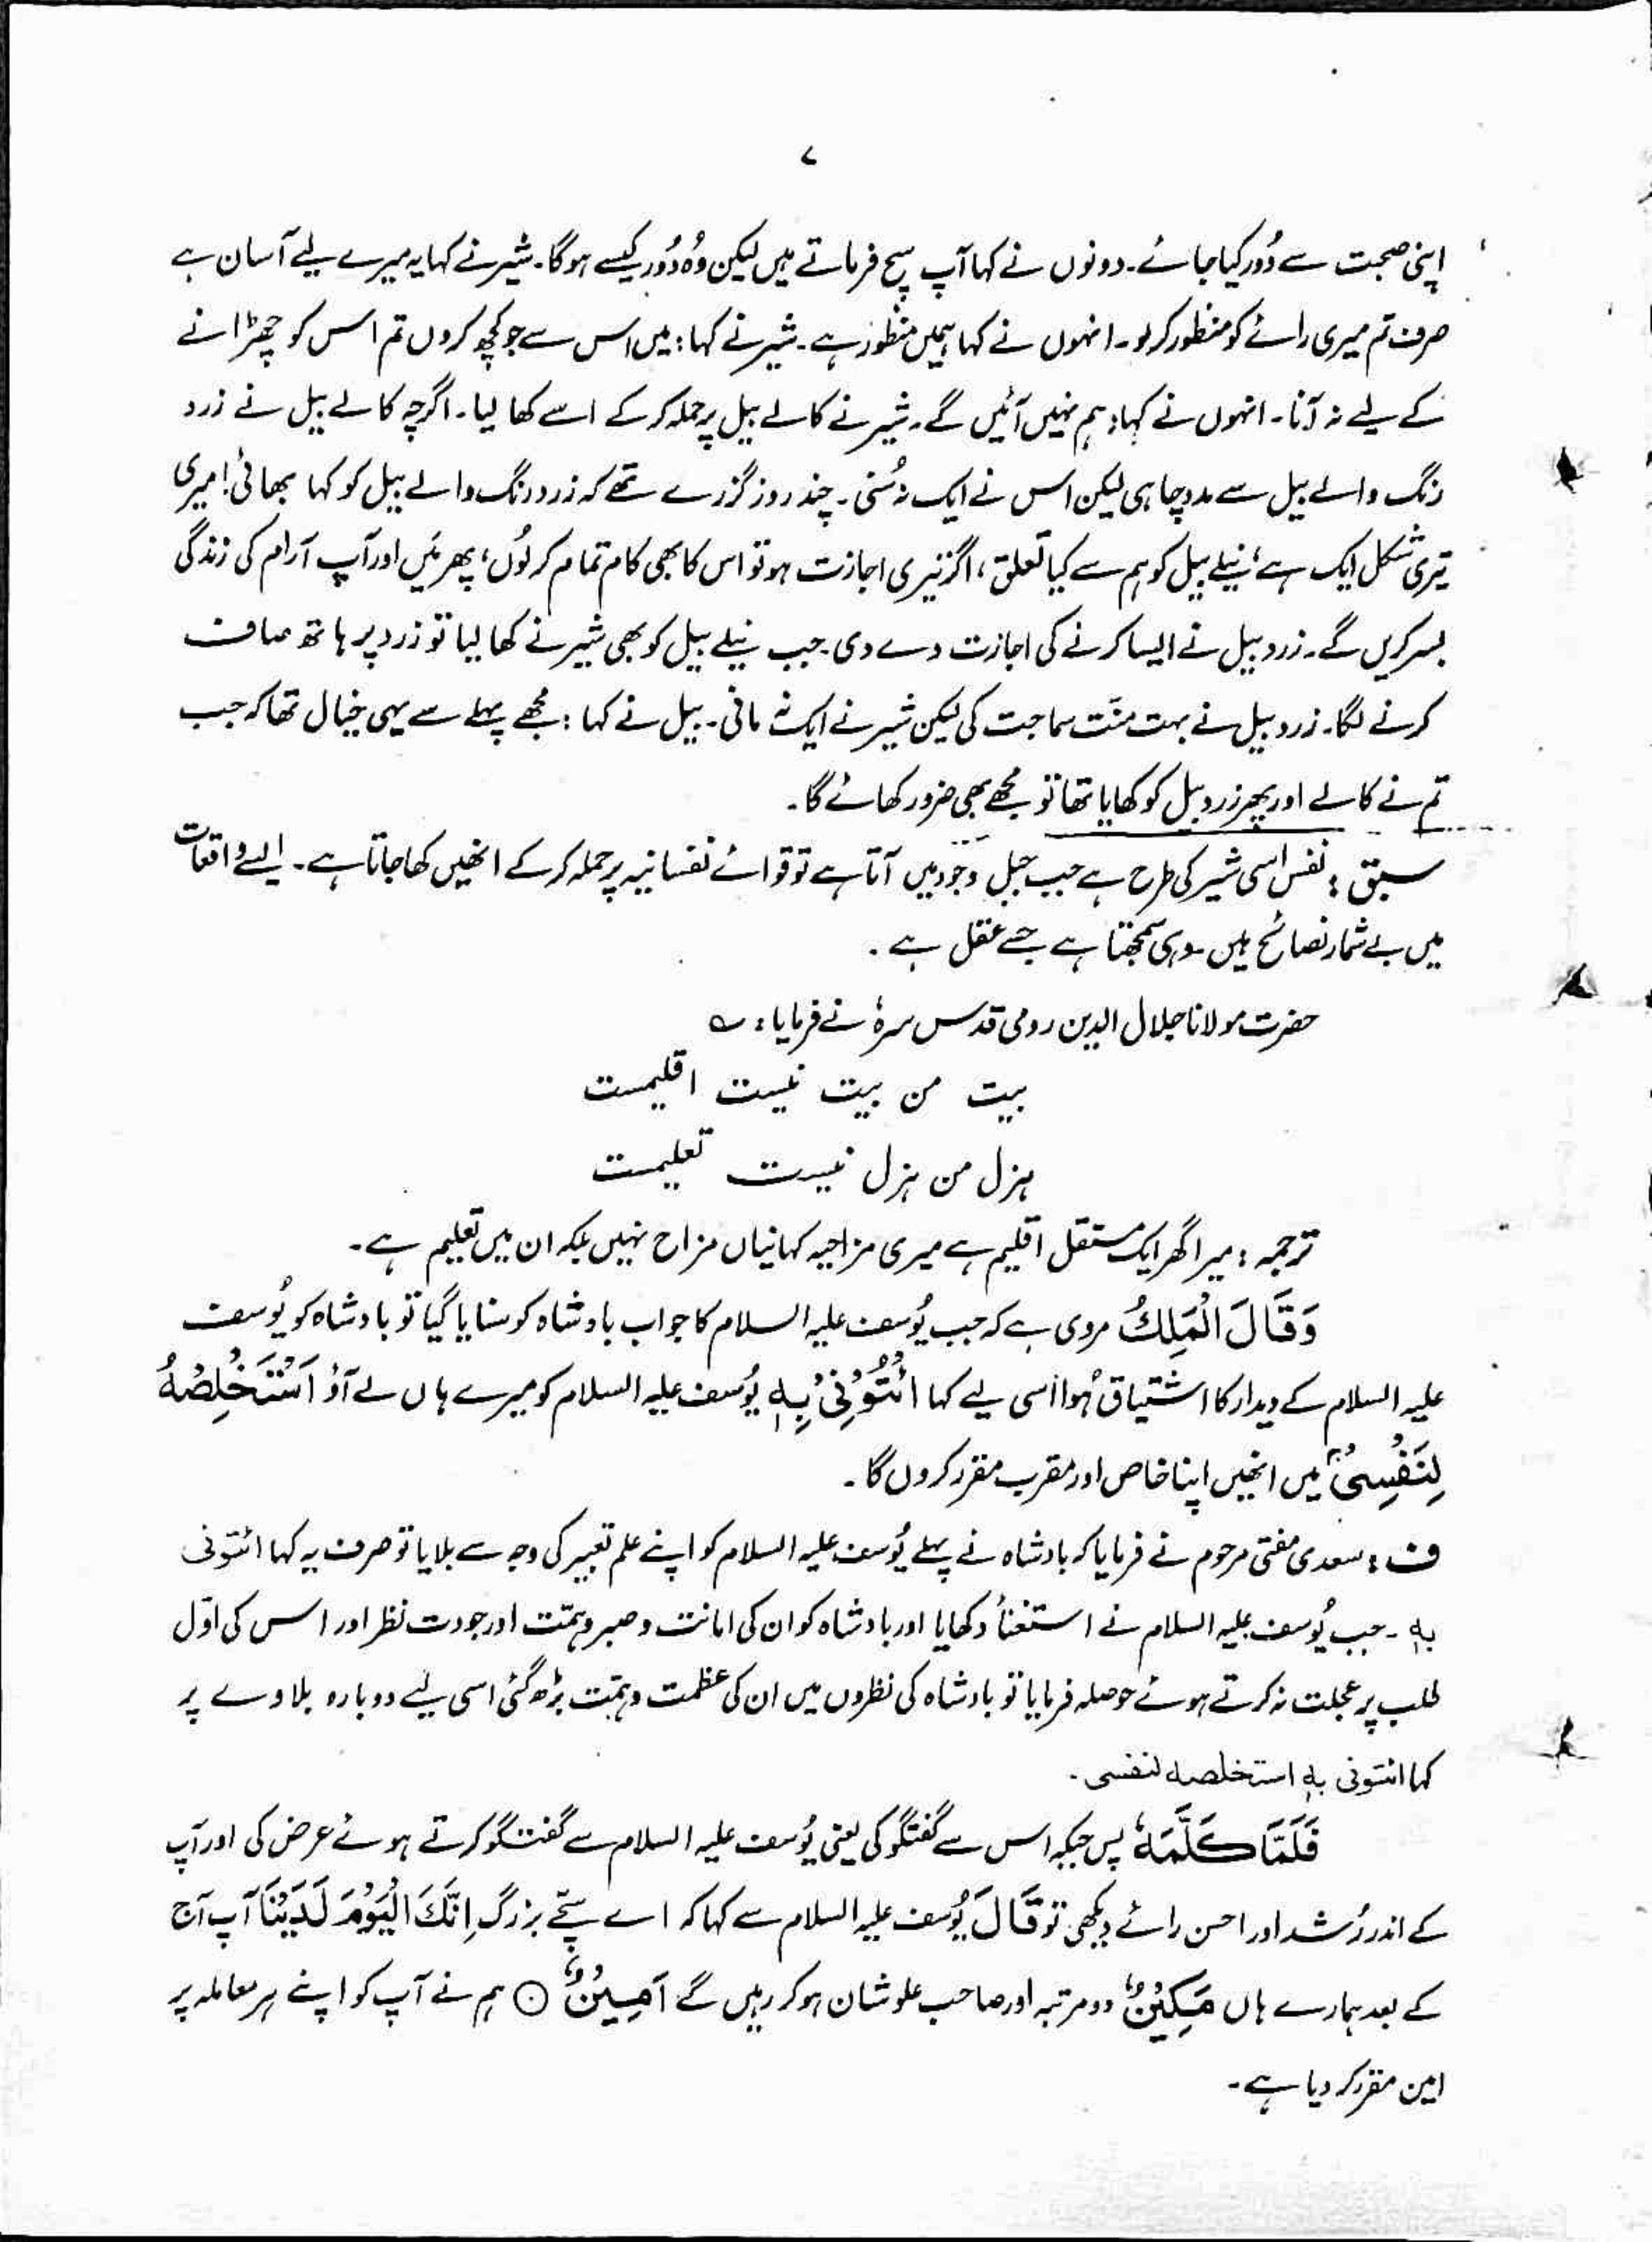 ۷
اپنی صحبت سے دُور کیا جائے۔ دونوں نے کہا آپ سچ فرماتے ہیں لیکن وُہ دُور کیسے ہوگا۔ شیر نے کہا یہ میرے لیے آسان ہے
صرف تم میری رائے کو منظور کرلو۔ انہوں نے کہا ہمیں منظور ہے۔ شیر نے کہا: میں اس سے جو کچھ کروں تم اس کو چھڑانے
کے لیے نہ آنا۔ انہوں نے کہا: ہم نہیں آئیں گے۔ شیر نے کالے بیل پر حملہ کر کے اسے کھا لیا۔ اگرچہ کالے بیل نے زرد
رنگ والے بیل سے مدد چاہی لیکن اس نے ایک نہ سُنی۔ چند روز گزرے تھے کہ زرد رنگ والے بیل کو کہا بھائی! میری
تیری شکل ایک ہے، نیلے بیل کو ہم سے کیا تعلق، اگر تیری اجازت ہو تو اس کا بھی کام تمام کر لُوں، پھر میَں اور آپ آرام کی زندگی
بسر کریں گے۔ زرد بیل نے ایسا کرنے کی اجازت دے دی۔ جب نیلے بیل کو بھی شیر نے کھا لیا تو زرد پر ہاتھ صاف
کرنے لگا۔ زرد بیل نے بہت منّت سماجت کی لیکن شیر نے ایک نہ مانی۔ بیل نے کہا: مجھے پہلے سے یہی خیال تھا کہ جب
تم نے کالے اور پھر زرد بیل کو کھایا تھا تو مجھے بھی ضرور کھائے گا۔
سبق: نفس اسی شیر کی طرح ہے جب جبل وجود میں آتا ہے تو قوائے نفسانیہ پر حملہ کر کے انھیں کھا جاتا ہے۔ ایسے واقعات
میں بے شمار نصائح ہیں۔ وہی سمجھتا ہے جسے عقل ہے۔
حضرت مولانا جلال الدین رومی قدس سرہٗ نے فرمایا: ؎
بیت من بیت نیست اقلیمست
ہزل من ہزل نیست تعلیمست
ترجمہ: میرا گھر ایک مستقل اقلیم ہے میری مزاحیہ کہانیاں مزاح نہیں بلکہ ان میں تعلیم ہے۔
وَقَالَ الْمَلِکُ مروی ہے کہ جب یُوسف علیہ السلام کا جواب بادشاہ کو سنایا گیا تو بادشاہ کو یُوسف
علیہ السلام کے دیدار کا اشتیاق ہُوا اسی لیے کہا ائْتُوْنِیْ بِہٖ یُوسف علیہ السلام کو میرے ہاں لے آؤ اَسْتَخْلِصْہُ
لِنَفْسِیْ ۚ میں انھیں اپنا خاص اور مقرب مقرر کروں گا۔
ف: سعدی مفتی مرحوم نے فرمایا کہ بادشاہ نے پہلے یُوسف علیہ السلام کو اپنے علم تعبیر کی وجہ سے بلایا تو صرف یہ کہا ائتونی
بہٖ۔ جب یُوسف علیہ السلام نے استغنأ دکھایا اور بادشاہ کو ان کی امانت و صبر و ہمّت اور جودت نظر اور اس کی اوّل
طلب پر عجلت نہ کرتے ہوئے حوصلہ فرمایا تو بادشاہ کی نظروں میں ان کی عظمت و ہمّت بڑھ گئی اسی لیے دوبارہ بلاوے پر
کہا ائتونی بہٖ استخلصہ لنفسی۔
فَلَمَّا کَلَّمَہٗ پس جبکہ اس سے گفتگو کی یعنی یُوسف علیہ السلام سے گفتگو کرتے ہوئے عرض کی اور آپ
کے اندر رُشد اور احسن رائے دیکھی تو قَالَ یُوسف علیہ السلام سے کہا کہ اے سچّے بزرگ اِنَّکَ الْیَوْمَ لَدَیْنَا آپ آج
کے بعد ہمارے ہاں مَکِیْنٌ دو مرتبہ اور صاحب علو شان ہو کر رہیں گے اَمِیْنٌ ۝ ہم نے آپ کو اپنے ہر معاملہ پر
امین مقرر کر دیا ہے۔